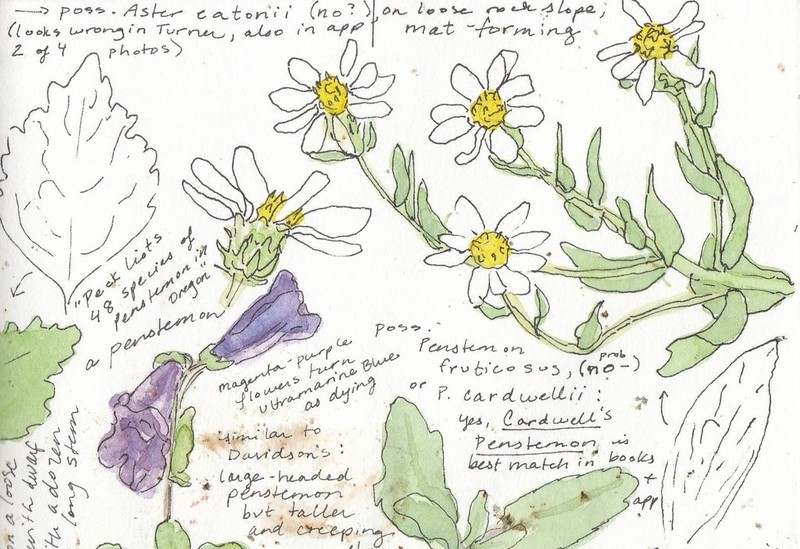 → poss. Aster eatonii (no?), on loose rock slope,
(looks wrong in Turner, also in app mat-forming
2 of 4 photos)
"Peck lists
48 species of
Penstemon in
Oregon"
a penstemon
magenta-purple
flowers turn
ultramarine blue
as dying
similar to
Davidson's:
large-headed
penstemon
but taller
and creeping
poss.
Penstemon
fruticosus, (prob no-)
or P. cardwellii:
yes, Cardwell's
Penstemon is
best match in books
+
app
n a loose
with dwarf
ith a dozen
long stem